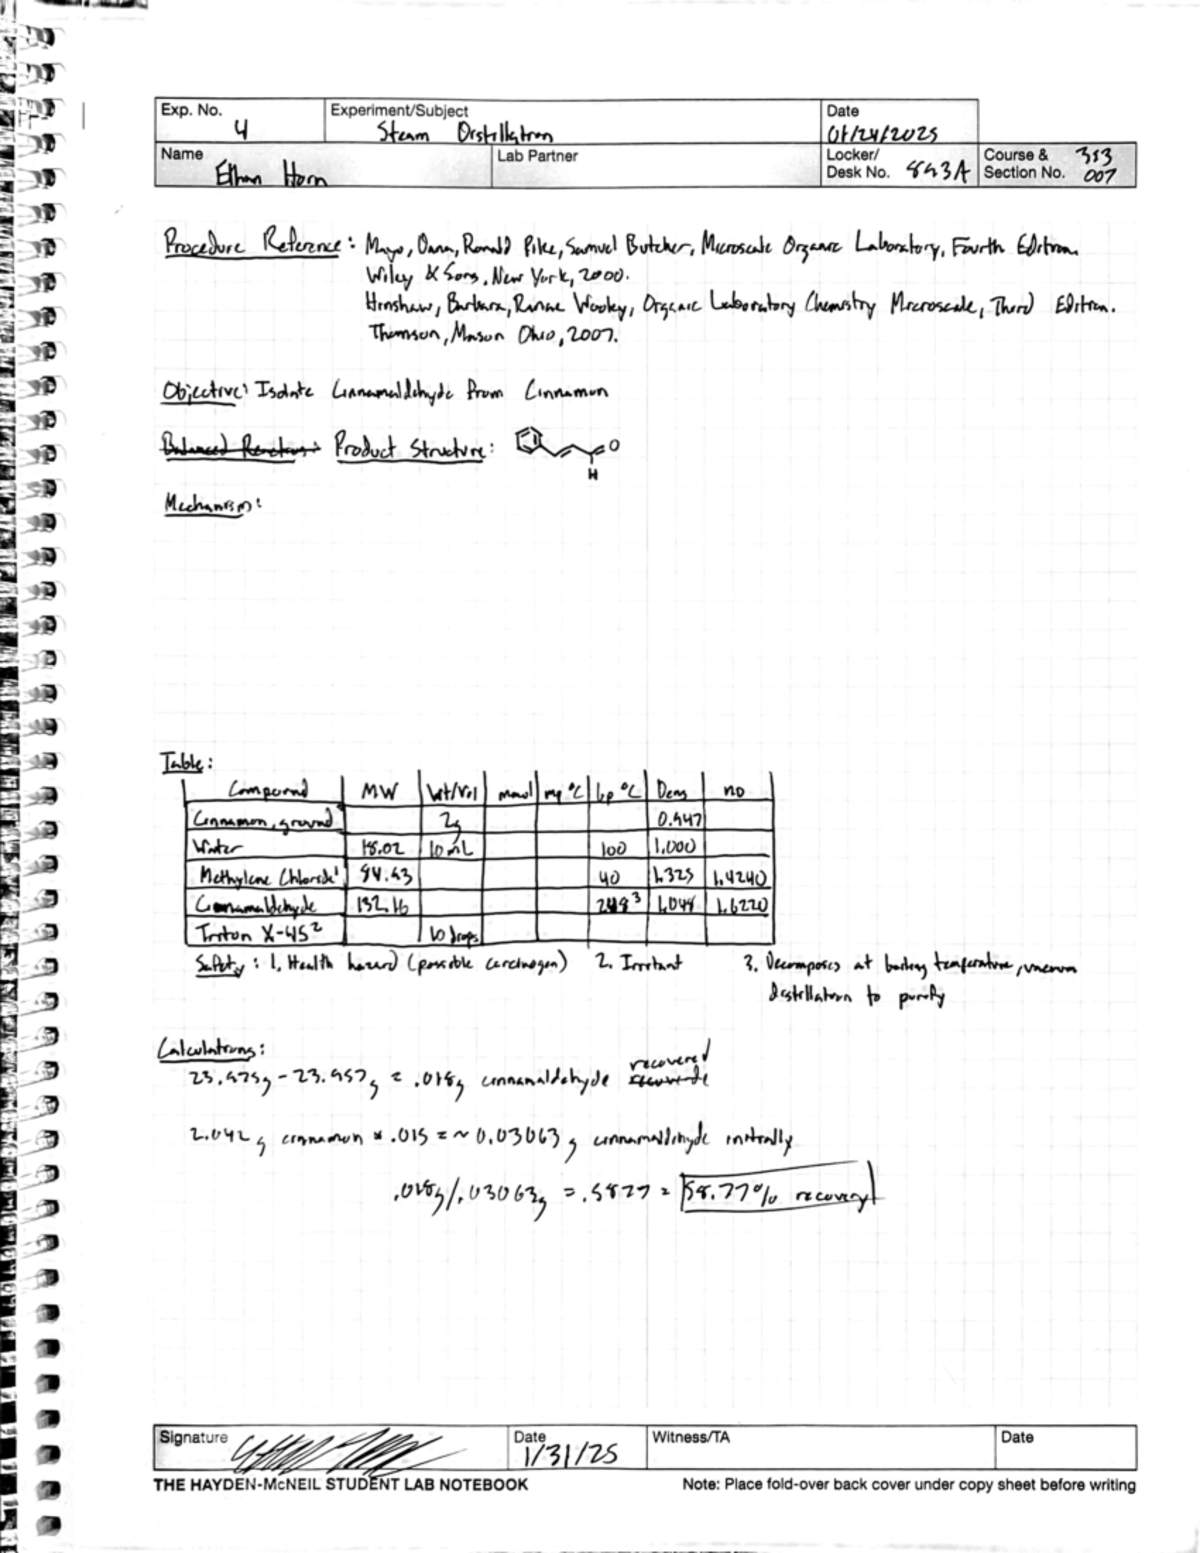 Exp. No. 4 Experiment/Subject Steam Distillation Date 01/24/2025
Name Ethan Horn Lab Partner Locker/Desk No. 843A Course & Section No. 353 007
Procedure Reference: Mayo, Dana, Ronald Pike, Samuel Butcher, Microscale Organic Laboratory, Fourth Edition.
Wiley & Sons, New York, 2000.
Hinshaw, Barbara, Ranae Wooley, Organic Laboratory Chemistry Microscale, Third Edition.
Thomson, Mason Ohio, 2007.
Objective: Isolate Cinnamaldehyde from Cinnamon
Balanced Reactions: Product Structure: O
H
Mechanism:
Table:
Compound MW Wt/Vol mmol mp °C bp °C Dens nD
Cinnamon, ground 2g 0.947
Water 18.02 10 mL 100 1.000
Methylene Chloride¹ 84.93 40 1.325 1.4240
Cinnamaldehyde 132.16 248³ 1.048 1.6220
Triton X-45² 10 drops
Safety: 1. Health hazard (possible carcinogen) 2. Irritant 3. Decomposes at boiling temperature, vacuum
distillation to purify
Calculations:
recovered
23.975g - 23.957g = .018g cinnamaldehyde
2.042 g cinnamon * .015 = ~ 0.03063 g cinnamaldehyde initially
.018g/.03063g = .5877 = 58.77% recovery
Signature Date 1/31/25 Witness/TA Date
THE HAYDEN-McNEIL STUDENT LAB NOTEBOOK Note: Place fold-over back cover under copy sheet before writing